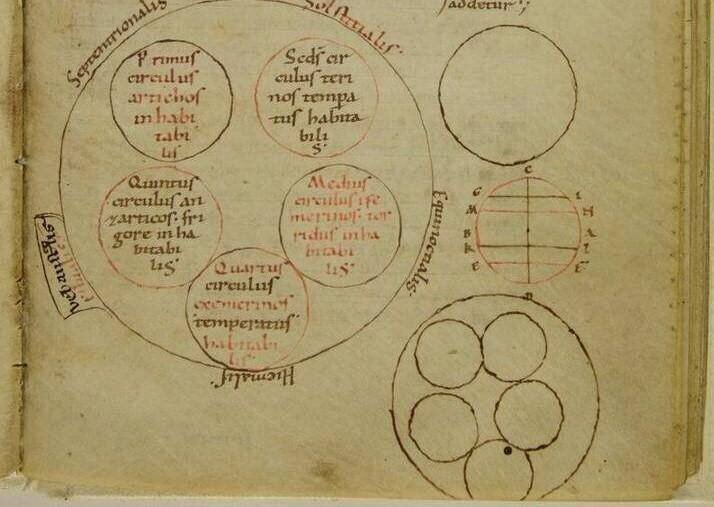 Septentrionalis
Solstitialis.
Primus
circulus
artichos
inhabi
tabi
lis
Scds cir
culus teri
nos tempa
tus habita
bili
s.
Quintus
circulus an
tarticos. fri
gore inha
bitabi
lis
Medius
circulus ise
merinos. tor
ridus inha
bitabi
lis.
Quartus
circulus
exemerinos
temperatus
habitabi
lis.
Equinoctialis.
Hiemalis.
C
G I
M H
B A
K L
E F
D